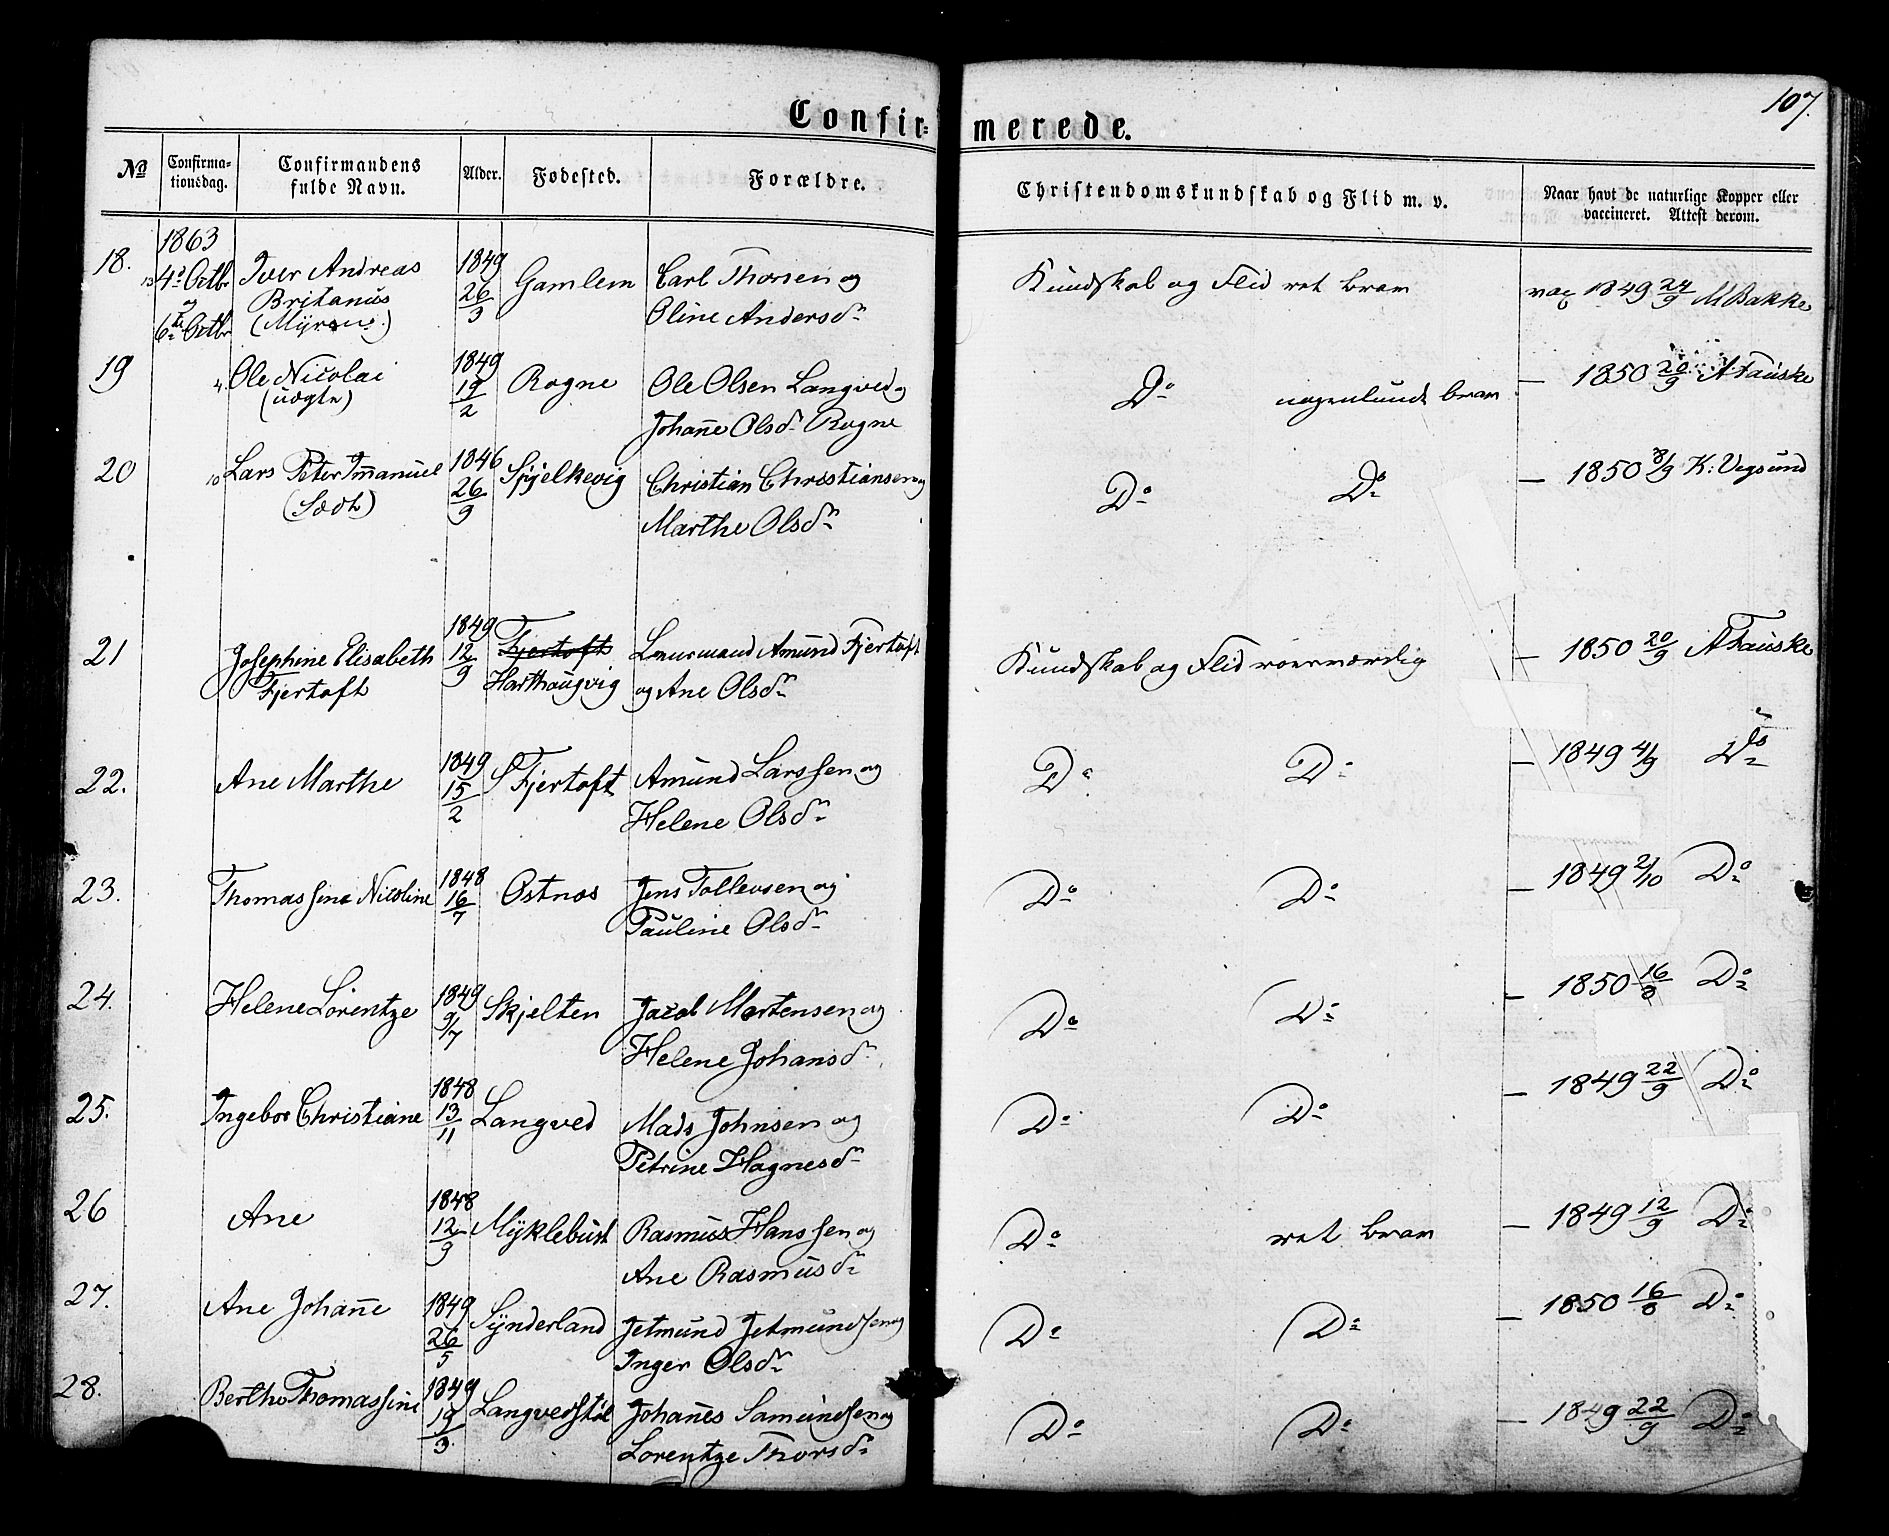 Confir-merede.
107.
No Confirma-tionsdag. Confirmandens fulde Navn. Alder. Fødested. Forældre. Christendomskundskab og Flid m. v. Naar havt de naturlige Kopper eller vaccineret. Attest derom.
1863
18. 4de Octbr Iver Andreas 1849 Gamlem Carl Thorsen og Kundskab og Flid ret brav vac 1849 24/9 M Bakke
og Britanus 26/3 Oline Andersdn
6te Octbr
19 Ole Nicolai 1849 Rogne Ole Olsen Langved og Do nogenlunde brav — 1850 20/9 A Fauske
19/2 Johanne Olsdn Rogne
20 10 Lars Peter Immanuel 1846 Spjelkevig Christian Christiansen og Do Do — 1850 8/9 K: Vegsund
26/9 Marthe Olsdn
21 Josephine Elisabeth 1849 Fjertoft Lensmand Amund Fjertoft Kundskab og Flid roesværdig — 1850 20/9 A Fauske
Fjertoft 12/9 Harthougvig og Ane Olsdn
22. Ane Marthe 1849 Fjertoft Amund Larssen og Do Do — 1849 4/9 Ds
15/2 Helene Olsdn
23. Thomassine Nicoline 1848 Ostnæs Jens Tollevsen og Do Do — 1849 2/10 Do
16/7 Pauline Olsdn
24. Helene Lorentze 1849 Skjelten Jacob Mortensen og Do Do — 1850 16/8 Do
9/7 Helene Johansd
25. Ingebor Christiane 1848 Langved Mads Johnsen og Do Do — 1849 22/9 Do
13/11 Petrine Hagnesdn
26 Ane 1848 Myklebust Rasmus Hanssen og Do ret brav — 1849 12/9 Do
12/9 Ane Rasmusdn
27. Ane Johanne 1849 Synderland Jetmund Jetmundsen og Do Do — 1850 16/8 Do
26/5 Inger Olsdn
28. Berthe Thomassine 1849 Langvedstøl Johannes Samundsen og Do Do — 1849 22/9 Do
19/3 Lorentze Thorsdn